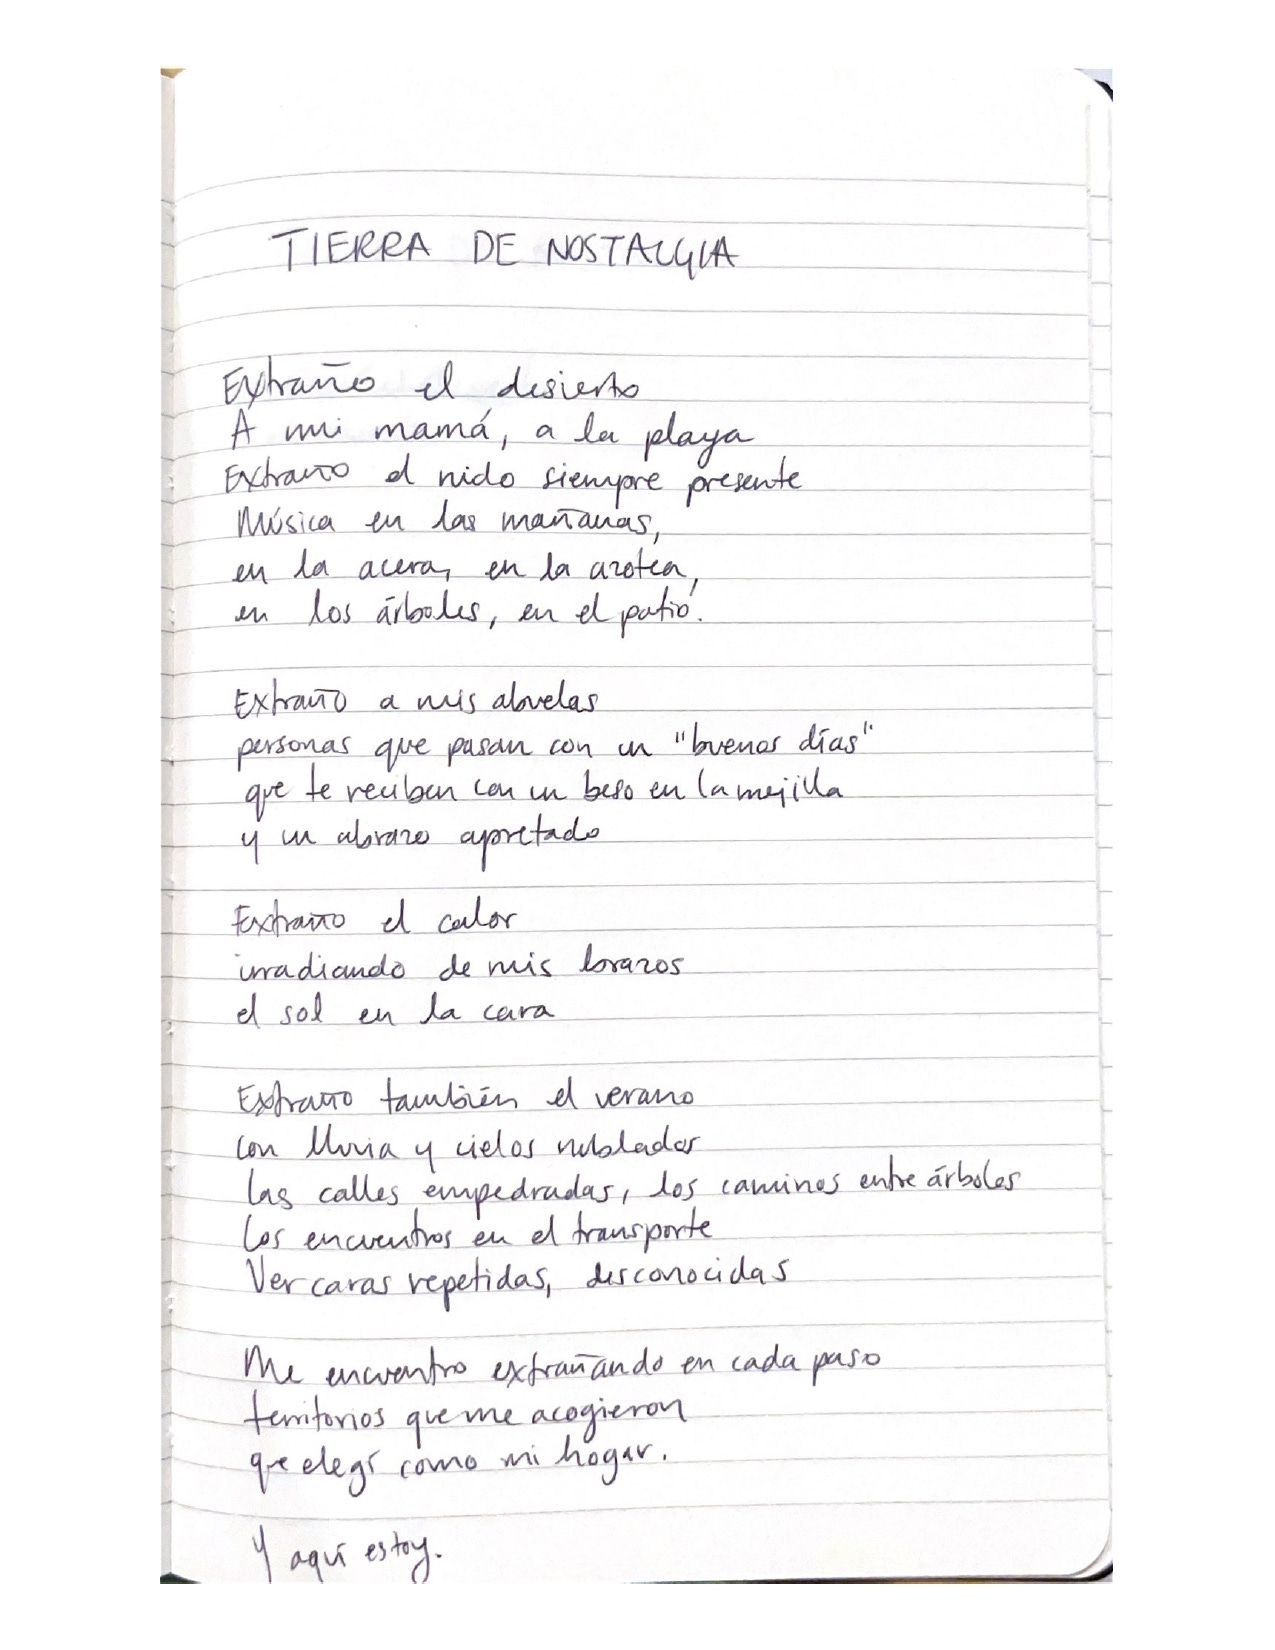 TIERRA DE NOSTALGIA
Extraño el desierto
A mi mamá, a la playa
Extraño el nido siempre presente
Música en las mañanas,
en la acera, en la azotea,
en los árboles, en el patio.
Extraño a mis abuelas
personas que pasan con un "buenos días"
que te reciben con un beso en la mejilla
y un abrazo apretado
Extraño el calor
irradiando de mis brazos
el sol en la cara
Extraño también el verano
con lluvia y cielos nublados
las calles empedradas, los caminos entre árboles
los encuentros en el transporte
Ver caras repetidas, desconocidas
Me encuentro extrañando en cada paso
territorios que me acogieron
que elegí como mi hogar.
Y aquí estoy.